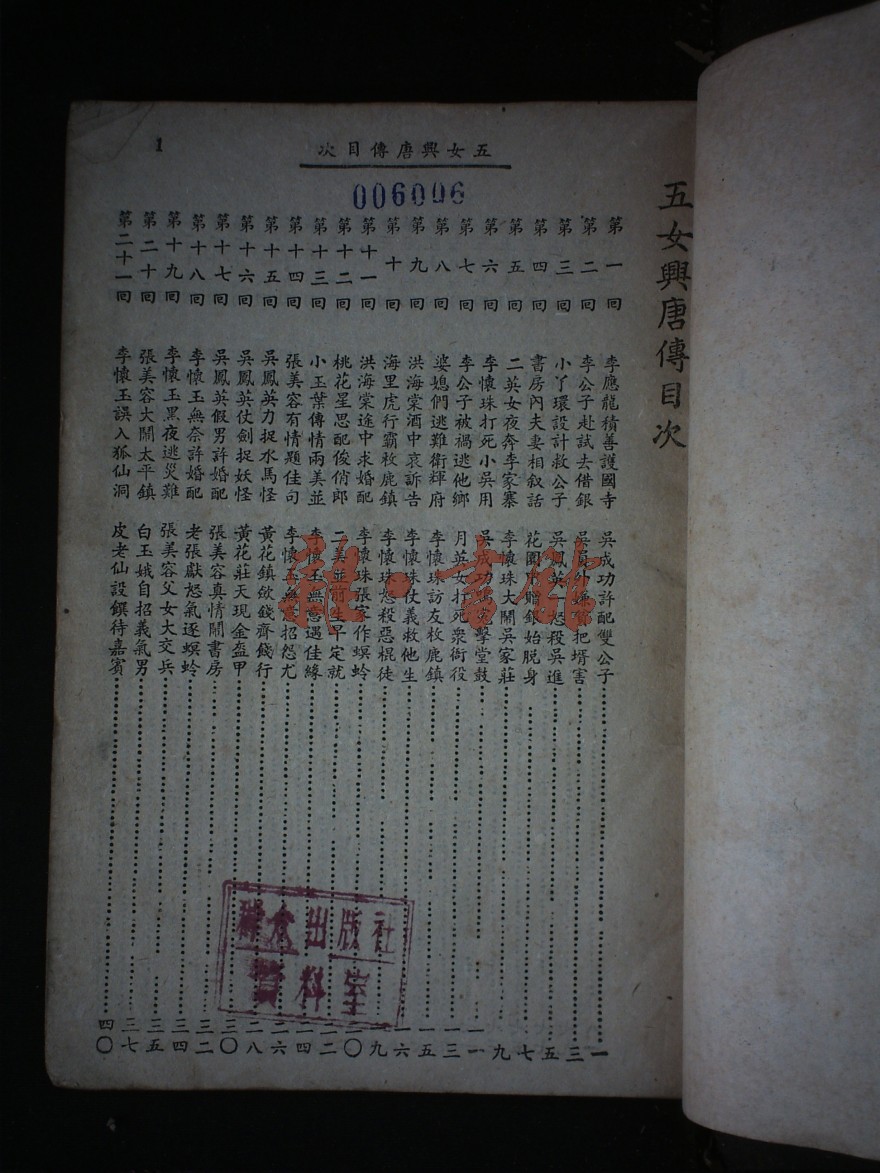 五女興唐傳目次
1
五女興唐傳目次
006006
第一回 李應龍積善護國寺 吳成功許配雙公子 一
第二回 李公子赴試去借銀 吳員外嫌 把壻害 三
第三回 小丫環設計救公子 吳鳳英怒殺吳進 五
第四回 書房內夫妻相叙話 花園 贈銀始脫身 七
第五回 二英女夜奔李家寨 李懷珠大鬧吳家莊 九
第六回 李懷珠打死小吳用 吳成功 擊堂鼓 一一
第七回 李公子被禍逃他鄉 月英女打死衆衙役 一三
第八回 婆媳們逃難衛輝府 李懷珠訪友枚鹿鎮 一五
第九回 洪海棠酒中哀訴告 李懷珠仗義救他生 一六
第十回 海里虎行霸枚鹿鎮 李懷珠怒殺惡棍徒 一九
第十一回 洪海棠途中求婚配 李懷珠張家作螟蛉 二〇
第十二回 桃花星思配俊俏郎 二美並前生早定就 二二
第十三回 小玉葉傳情兩美並 李懷玉無意遇佳緣 二四
第十四回 張美容有情題佳句 李懷玉無意招怨尤 二六
第十五回 吳鳳英力捉水馬怪 黃花鎮斂錢齊餞行 二八
第十六回 吳鳳英仗劍捉妖怪 黃花莊天現金盔甲 三〇
第十七回 吳鳳英假男許婚配 張美容真情鬧書房 三二
第十八回 李懷玉無奈許婚配 老張獻怒氣逐螟蛉 三四
第十九回 李懷玉黑夜逃災難 張美容父女大交兵 三五
第二十回 張美容大鬧太平鎮 白玉娥自招義氣男 三七
第二十一回 李懷玉誤入狐仙洞 皮老仙設饌待嘉賓 四〇
群众出版社
資料室